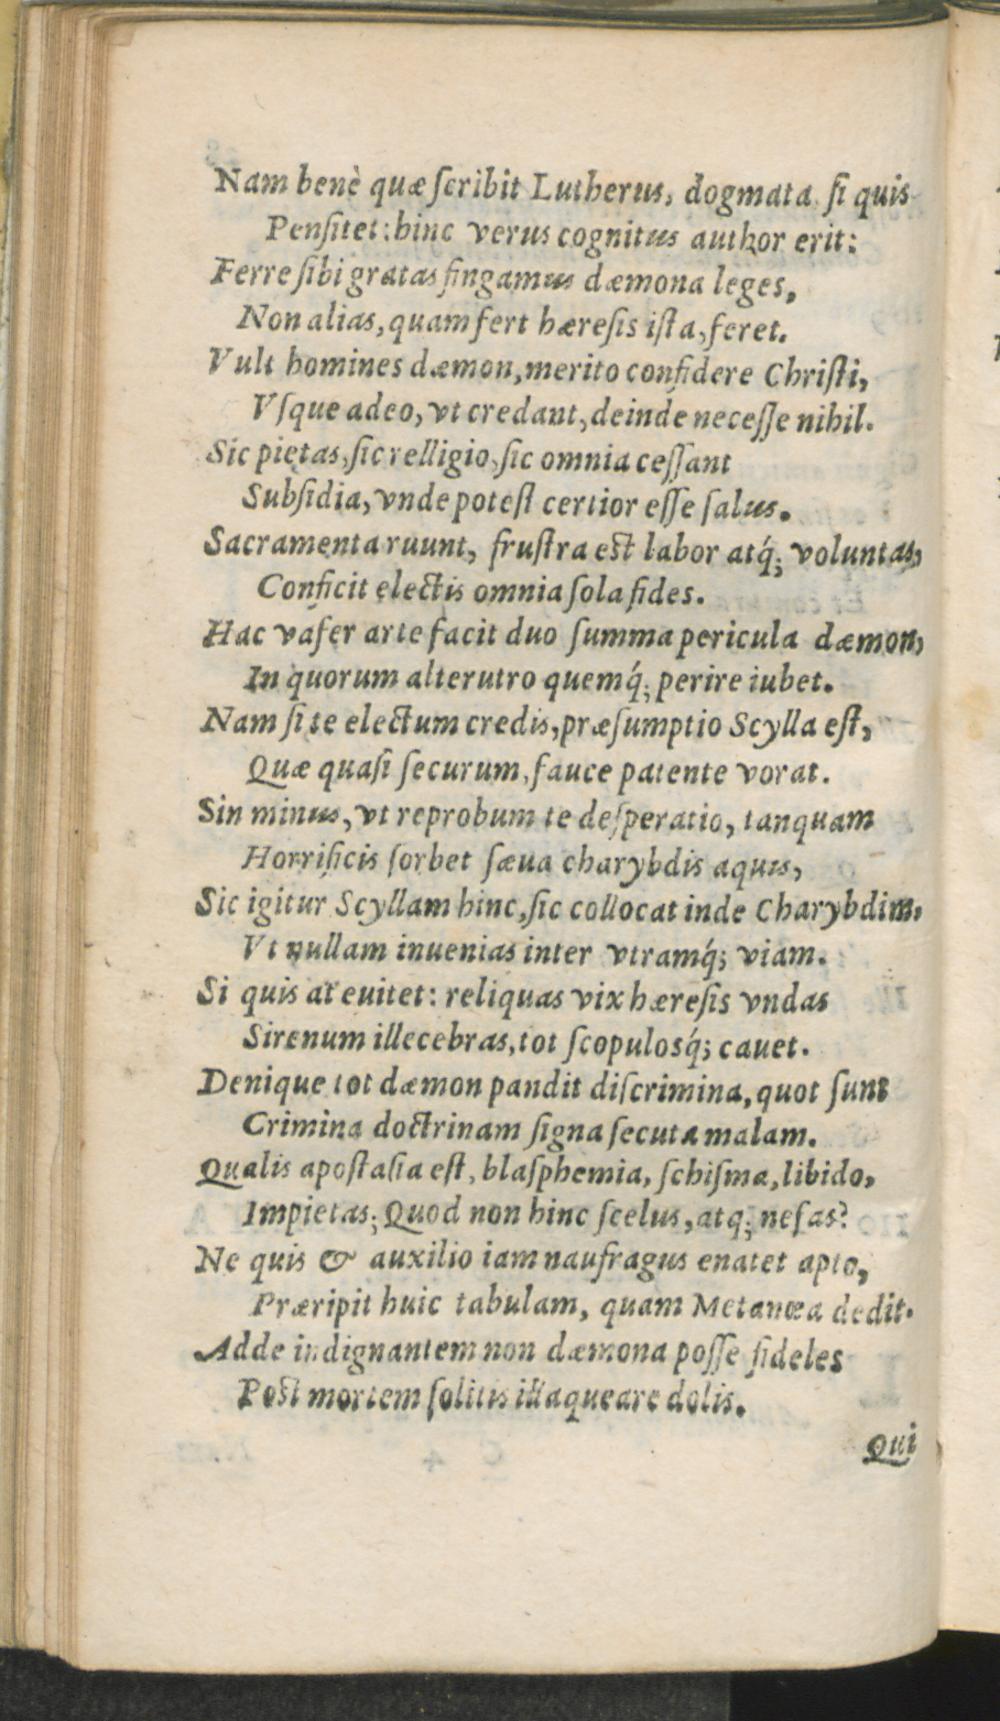 Nam benè quæ ſcribit Lutherus, dogmata ſi quis
Penſitet: hinc verus cognitus author erit:
Ferre ſibi gratas fingamus dæmona leges,
Non alias, quam fert hæreſis iſta, feret.
Vult homines dæmon, merito confidere Chriſti,
Vſque adeo, vt credant, deinde neceſſe nihil.
Sic pietas, ſic relligio, ſic omnia ceſſant
Subſidia, vnde poteſt certior eſſe ſalus.
Sacramenta ruunt, fruſtra eſt labor atq́; voluntas,
Conficit electis omnia ſola fides.
Hac vafer arte facit duo ſumma pericula dæmon,
In quorum alterutro quemq́; perire iubet.
Nam ſi te electum credis, præſumptio Scylla eſt,
Quæ quaſi ſecurum, fauce patente vorat.
Sin minus, vt reprobum te deſperatio, tanquam
Horrificis ſorbet ſæua charybdis aquis,
Sic igitur Scyllam hinc, ſic collocat inde Charybdim,
Vt nullam inuenias inter vtramq́; viam.
Si quis at euitet: reliquas vix hæreſis vndas
Sirenum illecebras, tot ſcopulosq́; cauet.
Denique tot dæmon pandit diſcrimina, quot ſunt
Crimina doctrinam ſigna ſecuta malam.
Qualis apoſtaſia eſt, blaſphemia, ſchiſma, libido,
Impietas; Quod non hinc ſcelus, atq; nefas?
Ne quis & auxilio iam naufragus enatet apto,
Præripit huic tabulam, quam Metanœa dedit.
Adde indignantem non dæmona poſſe fideles
Poſt mortem ſolitis illaqueare dolis.
Qui